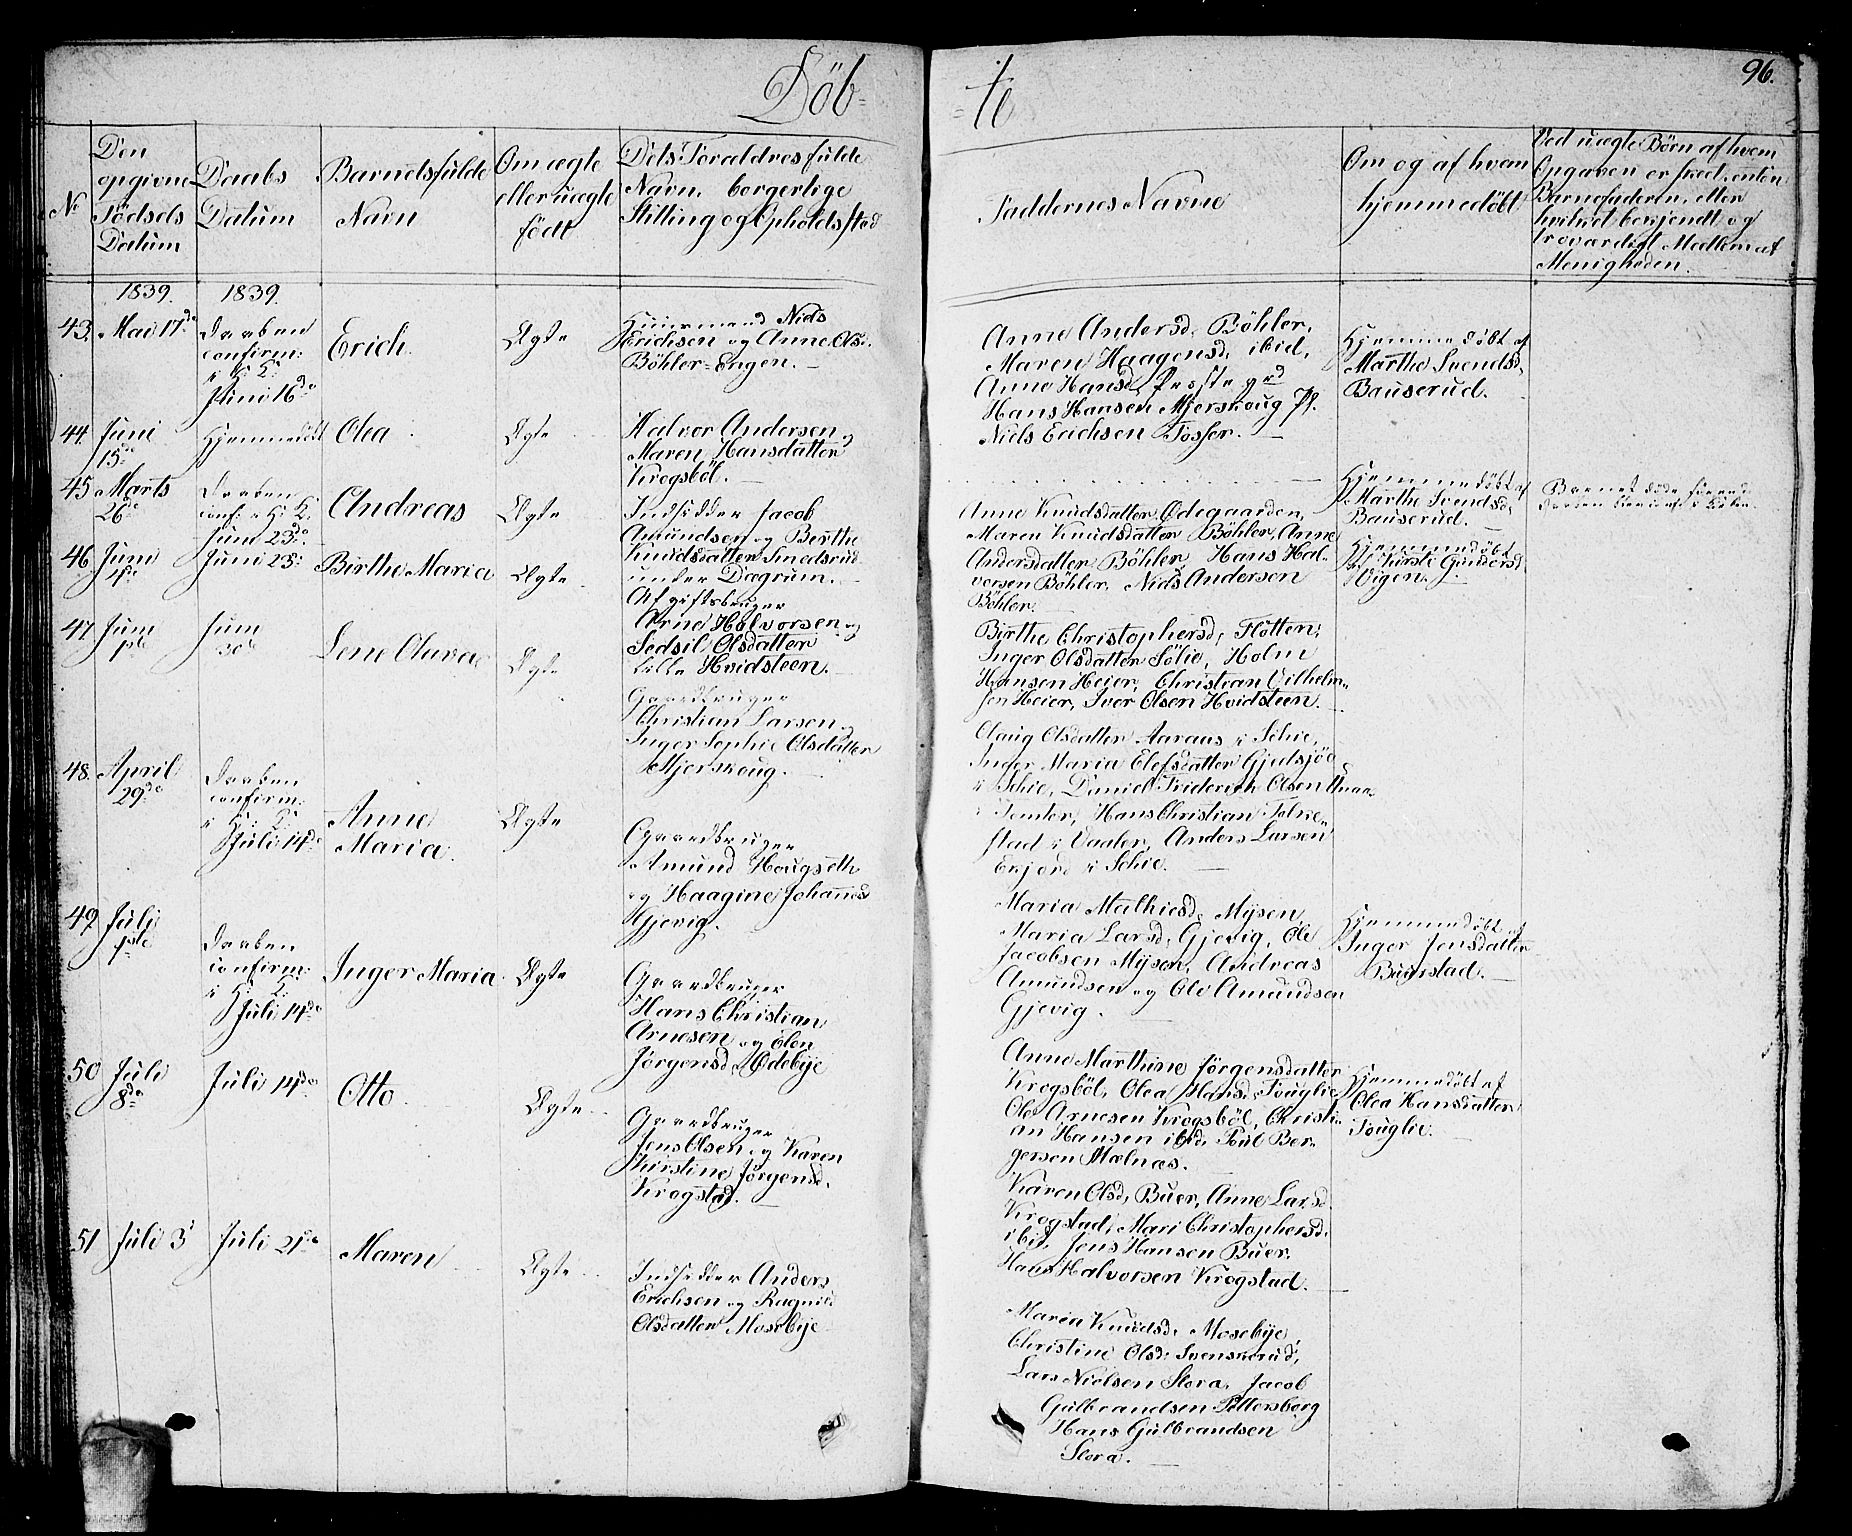 Döb=
=te
96.
No
Den
opgivne
Födsels
Datum
Daabs
Datum
Barnets fulde
Navn
Om ægte
eller uægte
födt
Dets Foraldres fulde
Navn, borgerlige
Stilling og Opholdssted
Faddernes Navne
Om og af hvem
hjemmedöbt
Ved uægte Börn af hvem
Opgaven er skeet, enten
Barnefaderen, eller
hvilket bekjendt og
troværdigt Medlem af
Menigheden.
1839.
1839.
43. Mai 17de
Daaben
confirm:
i H: K:
Juni 16de
Erich.
Ægte
Huusmand Niels
Erichsen og Anne Ols.
Böhler=Engen.
Anne Andersd, Böhler,
Maren Haagensd, ibid,
Anne Hansd, Præstegrd
Hans Hansen Mjerskoug Pl.
Niels Erichsen Fosser.
Hjemmedöbt af
Marthe Svendsd,
Bauserud.
44. Juni
15de
Hjemmedöbt
Olea
Ægte
Halvor Andersen og
Maren Hansdatter
Krogsböl.
Hjemmedöbt af
Marthe Svendsd,
Bauserud.
Barnet döde förend
45 Marts
26de
Daaben
conf: i H: K.
Juni 23de
Andreas
Ægte
Indsidder Jacob
Amundsen og Berthe
Knudsdatter Smedsrud
under Dægrum.
Anne Knudsdatter Ödegaarden,
Maren Knudsdatter Böhler, Anne
Andersdatter Böhler, Hans Hal-
vorsen Böhler, Niels Andersen
Böhler.
Hjemmedöbt
af Kirsti Gundersd
Vigen.
46 Juni
Juni 23de
Birthe Maria
Ægte
Afgiftsbruger
Arne Halvorsen og
Sedsil Olsdatter
Lille Hvidsteen.
Birthe Christophersd, Flötten,
Inger Olsdatter Sölie, Holm
Hansen Heier, Christian Vilhelm-
sen Heier, Iver Olsen Hvidsteen.
47 Juni
1ste
Juni
30te
Lene Olava
Ægte
Gaardbruger
Christian Larsen og
Inger Sophie Olsdatter
Mjerskoug.
Olaug Olsdatter Aaraas i Schie,
Inger Maria Elefsdatter Gjulsjöe
i Schie, Daniel Friderich Olsen
i Tomter, Hans Christian
stad i Vaaler, Anders Larsen
i Schie.
48. April
29de
Daaben
confirm:
i H: K:
Juli 14de
Anne
Maria.
Ægte
Gaardbruger
Amund Hougseth
og Haagine Johannesd
Gjevig.
Maria Mathiesd, Mysen,
Maria Larsd, Gjevig, Ole
Jacobsen Mysen, Andreas
Amundsen og Ole Amundsen
Gjevig.
Hjemmedöbt af
Inger Jensdatter
Buerstad.
49 Juli
1ste
Daaben
confirm:
i H: K:
Juli 14de
Inger Maria
Ægte
Gaardbruger
Hans Christian
Arnesen og Elen
Jörgensd, Ödebye
Anne Marthine Jörgensdatter
Krogsböl, Olea Hansd, Touglie
Ole Arnesen Krogsböl, Christi-
an Hansen ibid, Poul Ber-
gersen Mælnæs.
Hjemmedöbt af
Olea Hansdatter
Touglie.
50 Juli
8de
Juli 14de
Otto
Ægte
Gaardbruger
Jens Olsen og Karen
Kirstine Jörgensd,
Krogstad.
Karen Olsd, Buer, Anne Larsd,
Krogstad, Mari Christophersd,
ibid, Jens Hansen Buer,
Hans Halvorsen Krogstad.
51 Juli 3
Juli 21de
Maren
Ægte
Indsidder Anders
Erichsen og Ragnild
Olsdatter Mosebye
Maria Knudsd, Mosebye,
Christine Olsd: Svenskerud,
Lars Nielsen Slora, Jacob
Gulbrandsen Pettersborg
Hans Gulbrandsen
Slora.